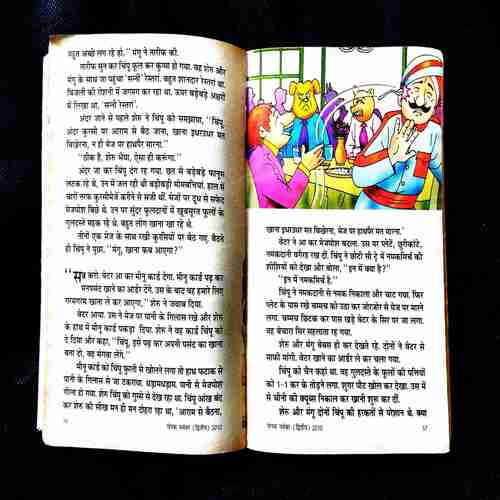 बहुत अच्छे लग रहे हो,'' मंगू ने तारीफ की.
तारीफ सुन कर चिंपू फूल कर कुप्पा हो गया. वह शेरु और
मंगू के साथ जा पहुंचा 'सन्नी' रेस्तरां. बहुत शानदार रेस्तरां था.
बिजली की रोशनी में जगमग कर रहा था. ऊपर बड़ेबड़े अक्षरों
में लिखा था, 'सन्नी रेस्तरां'.
अंदर जाने से पहले शेरु ने चिंपू को समझाया, ''चिंपू
अंदर कुरसी पर आराम से बैठ जाना, खाना इधरउधर मत
बिखेरना, न ही मेज पर हाथपैर मारना.''
''ठीक है, शेरु भैया, ऐसा ही करूंगा.''
अंदर जा कर चिंपू दंग रह गया. छत से बड़ेबड़े फानूस
लटक रहे थे. उन में जल रही थीं बड़ीबड़ी मोमबत्तियां. हाल में
चारों तरफ कुरसीमेजें करीने से सजी थीं. मेजों पर दूध से सफेद
मेजपोश बिछे थे. उन पर सुंदर फूलदानों में खूबसूरत फूलों के
गुलदस्ते महक रहे थे. बहुत लोग खाना खा रहे थे.
तीनों एक मेज के साथ रखी कुरसियों पर बैठ गए. बैठते
ही चिंपू ने पूछा, ''मंगू, खाना कब आएगा?''
''सब्र करो. वेटर आ कर मीनू कार्ड देगा. मीनू कार्ड पढ़ कर
मनपसंद खाने का आर्डर देंगे. उस के बाद वह हमारे लिए
गरमागरम खाना ले कर आएगा,'' शेरु ने जवाब दिया.
वेटर आया. उस ने मेज पर पानी के गिलास रखे और शेरु
के हाथ में मीनू कार्ड पकड़ा दिया. शेरु ने वह कार्ड चिंपू को
दे दिया और कहा, ''चिंपू, इसे पढ़ कर अपनी पसंद का खाना
बता दो, वह मंगवा लेंगे.''
मीनू कार्ड को चिंपू फुर्ती से खोलने लगा तो हाथ फटाक से
पानी के गिलास से जा टकराया. धड़ामधड़ाम. पानी से मेजपोश
गीला हो गया. शेरु चिंपू को गुस्से से देख रहा था. चिंपू आंखें बंद
कर शेरु को सीख मन ही मन दोहरा रहा था, 'आराम से बैठना,
चंपक नवंबर (द्वितीय) 2010
खाना इधरउधर मत बिखेरना, मेज पर हाथपैर मत मारना.'
वेटर ने आ कर मेजपोश बदला. उस पर प्लेटें, छुरीकांटे,
नमकदानी वगैरा रख दीं. चिंपू ने छोटी सी ट्रे में नमकमिर्च की
शीशियों को देखा और बोला, ''इन में क्या है?''
''इन में नमकमिर्च है.''
चिंपू ने नमकदानी से नमक निकाला और चाट गया. फिर
प्लेट के पास रखे चम्मच को उठा कर जोरजोर से मेज पर मारने
लगा. चम्मच छिटक कर पास खड़े वेटर के सिर पर जा लगा.
वह बेचारा सिर सहलाता रह गया.
शेरु और मंगू बेबस हो कर देखते रहे. दोनों ने वेटर से
माफी मांगी. वेटर खाने का आर्डर ले कर चला गया.
चिंपू को चैन कहां था. वह गुलदस्ते के फूलों की पत्तियों
को 1-1 कर के तोड़ने लगा. शुगर पौट खोल कर देखा. उस में
से चीनी की क्यूब्स निकाल कर खानी शुरू कर दीं.
शेरु और मंगू दोनों चिंपू की हरकतों से परेशान थे. क्या
चंपक नवंबर (द्वितीय) 2010
57